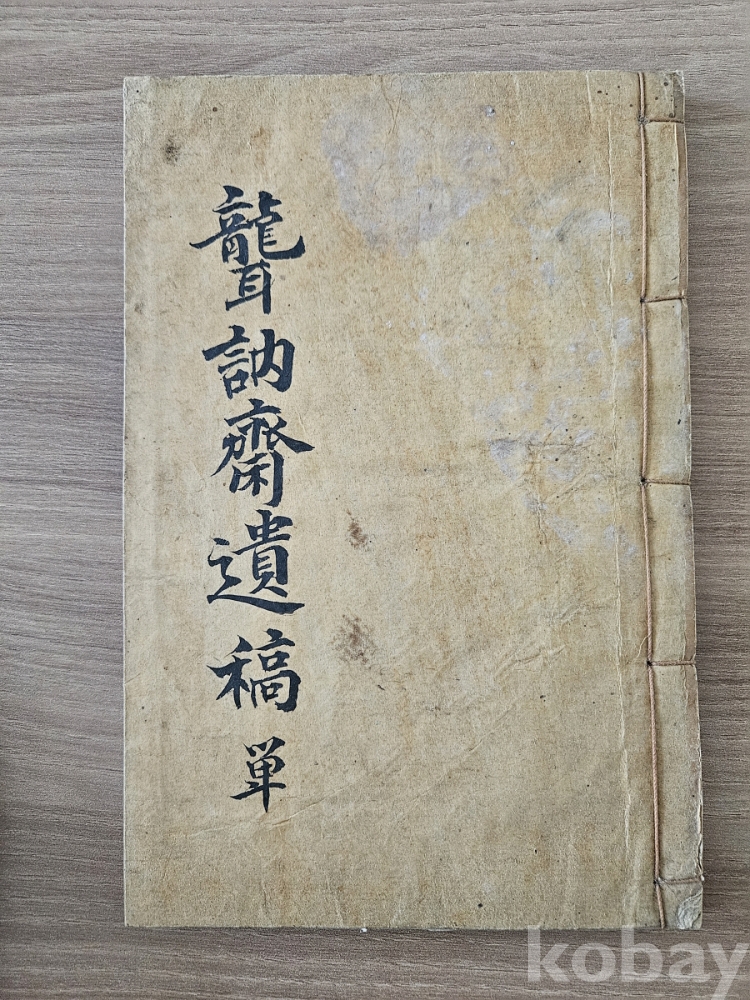 聾訥齋遺稿 単
kobay